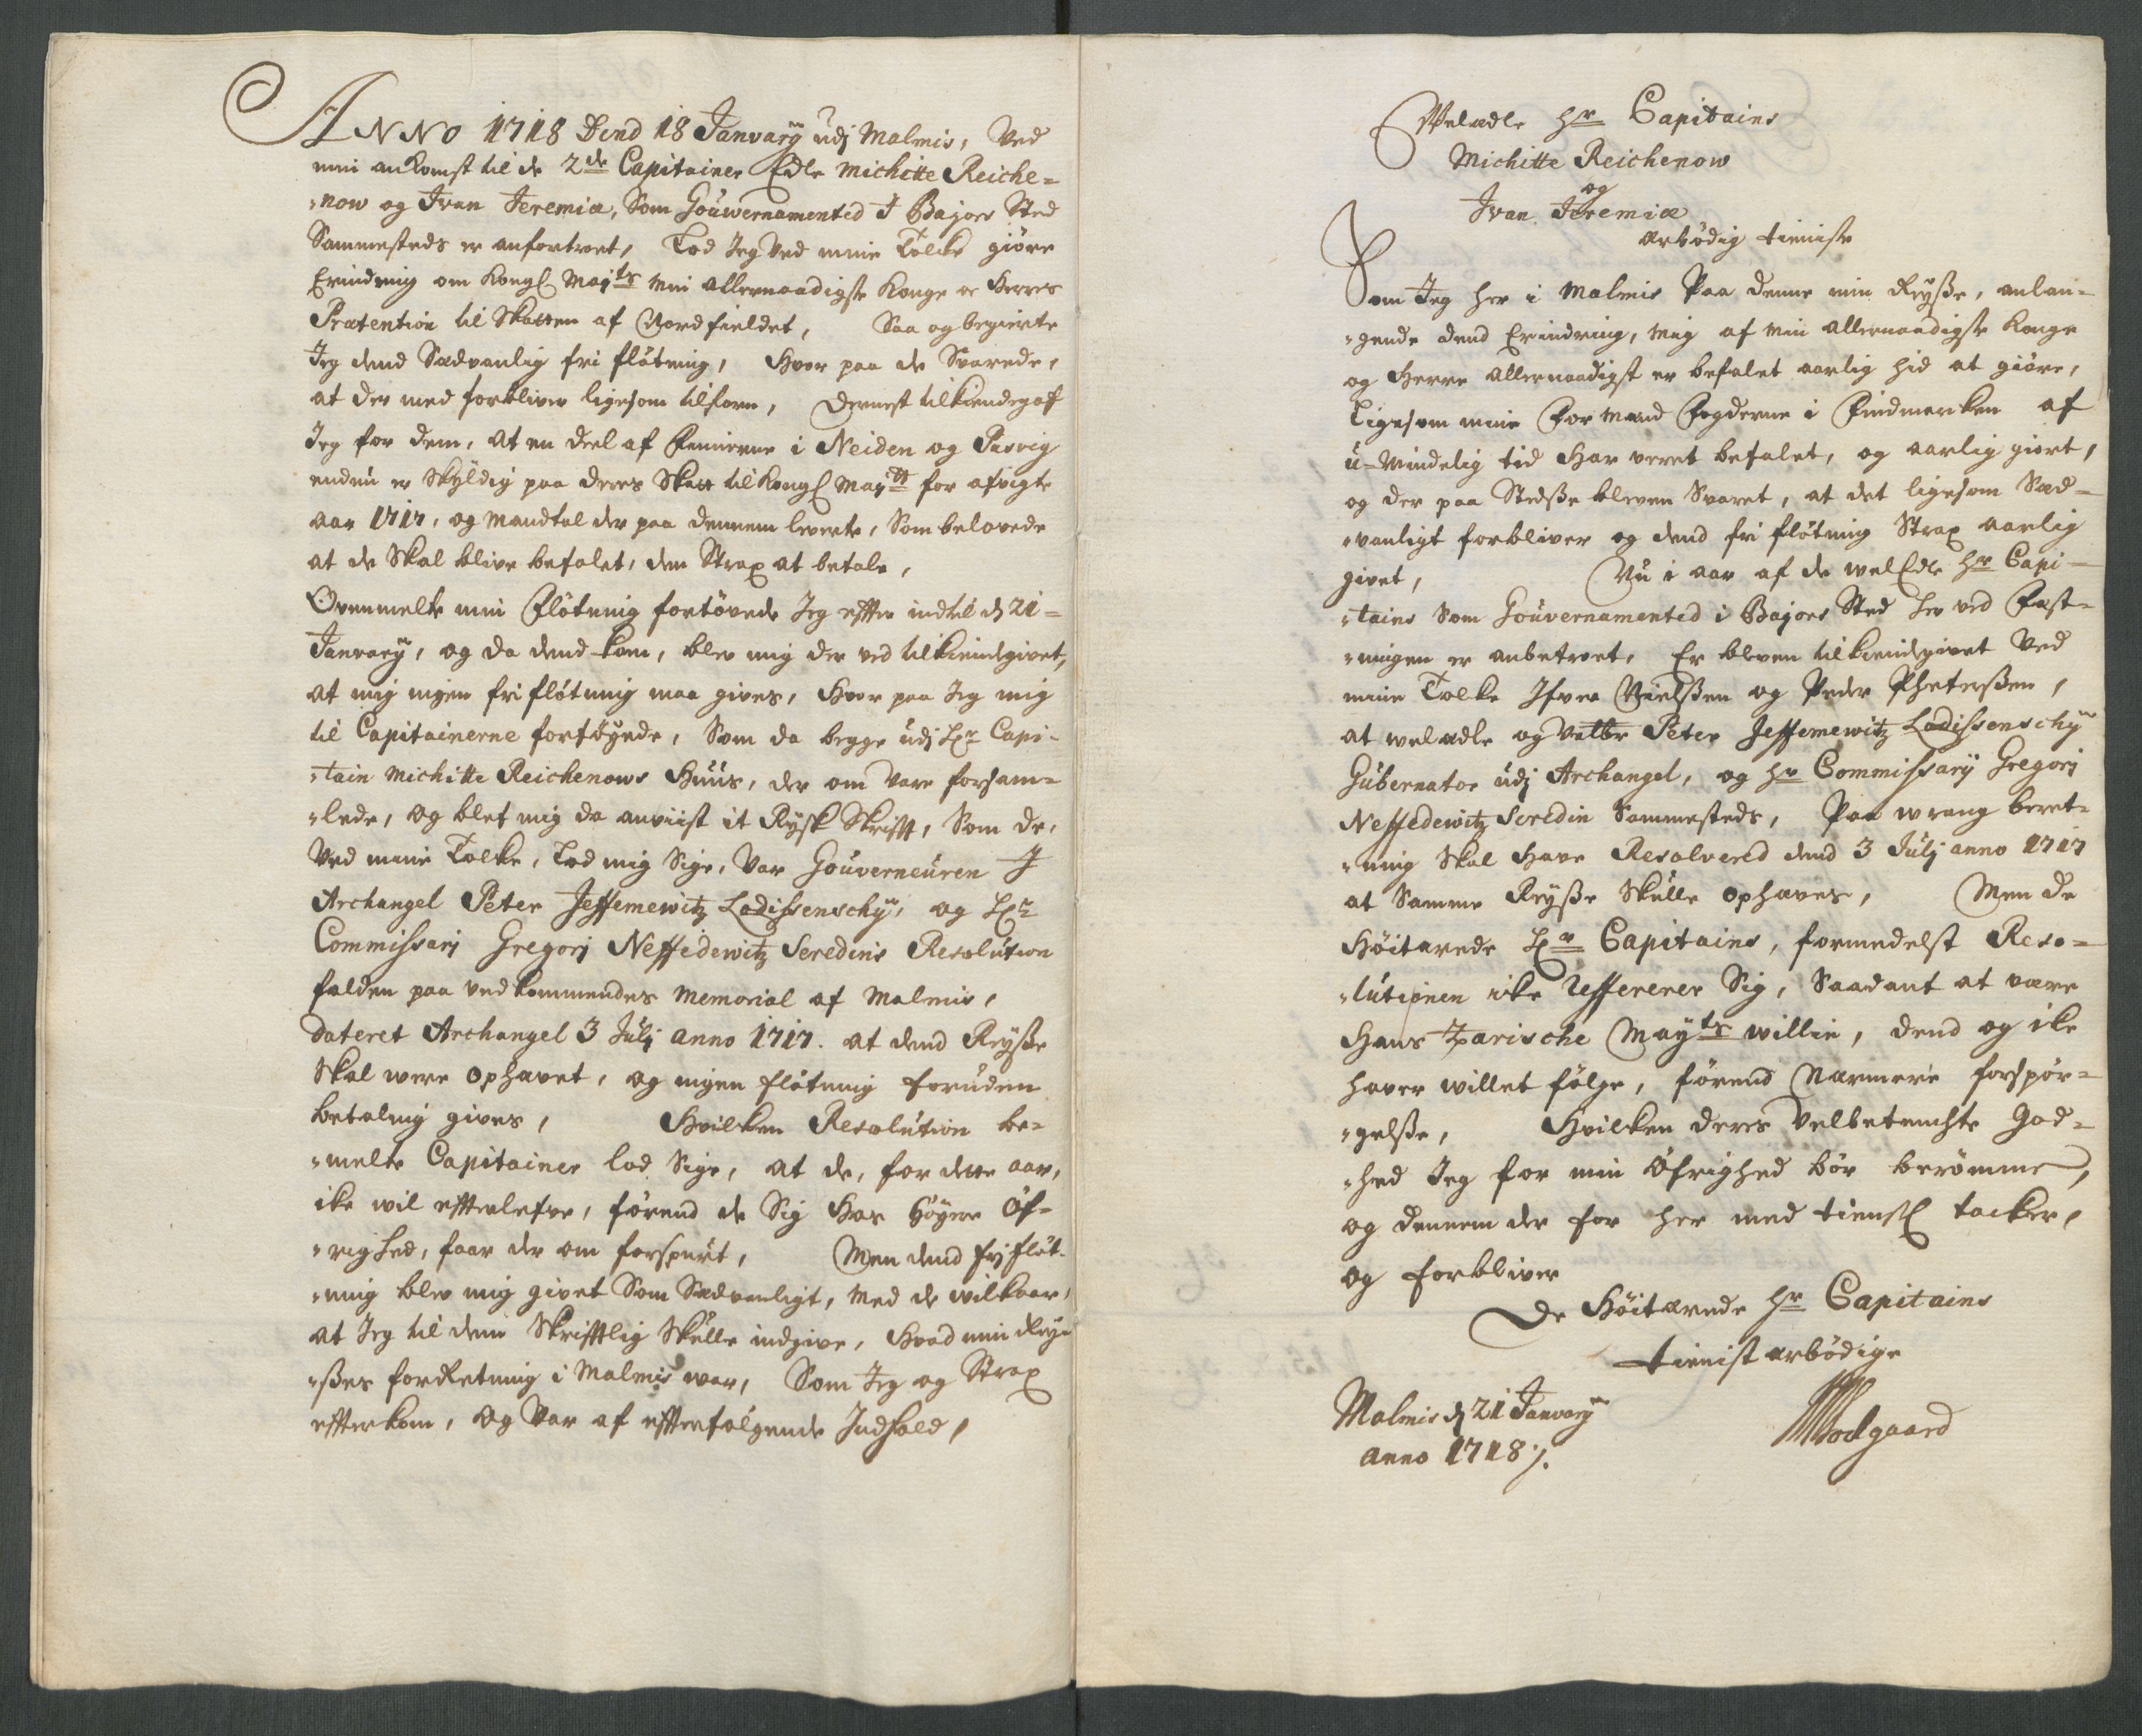 ANNO 1718 Dend 18 Janvarÿ udj Malmis, Ved
min ankomst til de 2de Capitainer Edle Michitte Reiche=
=now og Ivan Jeremiæ, Som Gouwernamented I Bajors Sted
Sammesteds er anfortroet, Lod Jeg Ved mine Tolcke giöre
Erindring om Kongl Mayts Min allernaadigste Konge oc Herres
Prætention til Skatten af Nordfieldet, Saa og begierte
Jeg dend Sædvanlig fri flötning, Hvor paa de Svarede,
at der med forbliver ligesom tilforn, Dernest tilkiendegaf
Jeg for dem, at en deel af Finnerne i Neiden og Pasvig
endnu er Skÿldig paa deres Skatt til Kongl Maytt for afvigte
aar 1717, og Mandtal der paa dennem leverte, Som belovede
at de Skal blive befalet, dem Strax at betale,
Ovenmelte min Flötning fortövede Jeg effter indtil d 21=
Janvarÿ, og da dend kom, blev mig der ved tilkiendgivet,
at mig ingen fri flötning maa gives, Hvor paa Jeg mig
til Capitainerne forföÿede, Som da begge udj Hr Capi=
=tain Michitte Reichenows Huus, der om vare forsam=
=lede, og blef mig da anviist it Rysk Skrifft, Som de,
Ved mine Tolke, Lod mig Sige, Var Gouverneuren I
Archangel Peter Jeffemewitz Ladissenschÿ, og Hr
Commissarj Gregorj Neffedewitz Seredins Resolution
falden paa Vedkommendes Memorial af Malmis,
Dateret Archangel 3 Julj anno 1717. at dend Reÿsse
Skal were ophævet, og ingen flötning foruden
betaling gives, Hvilken Resolution be=
=melte Capitainer lod Sige, at de, for dette aar,
ike wil effterlefve, förend de Sig Hos Höÿere Öf=
=righed, faar der om forspurt, Men dend frj flöt=
=ning blev mig givet Som Sædvanligt, med de wilkaar,
at Jeg til dem Skrifftlig Skulle indgive, Hvad min Reÿ=
=sses forRetning i Malmis war, Som Jeg og Strax
effterkom, og Var af effterfölgende Indhold,
Velædle Hr Capitains
Michitte Reichenow
og
Ivan Jeremiæ
ærbödig tieniste
Som Jeg her i Malmis Paa denne min Reÿsse, anlan=
=gende dend Erindring, Mig af Min allernaadigste Konge
og Herre allernaadigst er befalet aarlig hid at giöre,
Ligesom mine Formænd Fogderne i Findmarken af
u=Mindelig tid Har veret befalet, og aarlig giort,
og der paa Stedsse bleven Svaret, at det ligesom Sæd=
=vanligt forbliver og dend fri flötning Strax aarlig
givet, Nu i aar af de welEdle Hr Capi=
=tains Som Gouvernamented i Bajors Sted her ved Fæst=
=ningen er anbetroet, Er bleven tilkiendgivet Ved
mine Tolke Ifver Nielssen og Peder Phetersen,
at welædle og Velbr Peter Jeffemewitz Ladissenschÿ
Gubernator udj Archangel, og Hr Commissarÿ Gregorj
Neffedewitz Seredin Sammesteds, Paa wrang beret=
=ning Skal Have Resolvered dend 3 Julj anno 1717
at Samme Reÿsse Skulle ophæves, Men De
Höitærede Hr Capitains, formedelst Reso=
=lutionen icke Refferer Sig, Saadant at være
Hans Tzarische Maÿts willie, dend og ike
haver willet fölge, förend Nærmere forspör=
=gelsse, Hvilken deres Velbetenchte God=
=hed Jeg for min Öfrighed bör berömme,
og dennem der for her med tienstl tacker,
og forbliver
De Höitærede Hr Capitains
tienistærbödige
Malmis d 21 Janvarÿ
anno 1718 ⁒